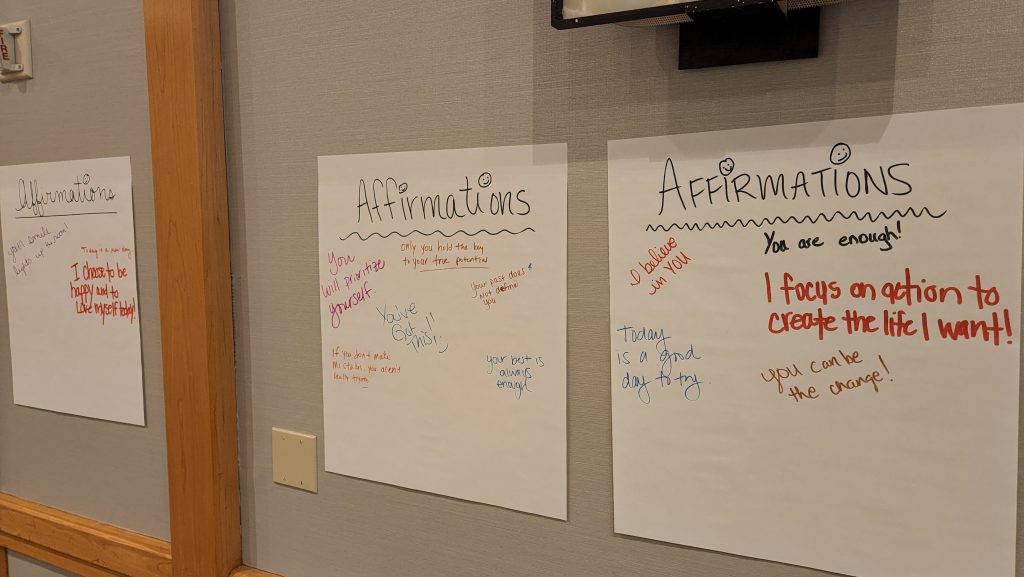 FIRE
Affirmations
your smile
lights up the room!
Today is a new day
I choose to be
happy and to
Love myself today!
Affirmations
You
will prioritize
yourself.
only you hold the key
to your true potential
Your past does
Not define
you
You've
Got
This!!
If you don't make
mistakes, you aren't
really trying
your best is
always
enough
AFFIRMATIONS
I believe
in you
You are enough!
I focus on action to
create the life I want!
Today
is a good
day to try.
you can be
the change!